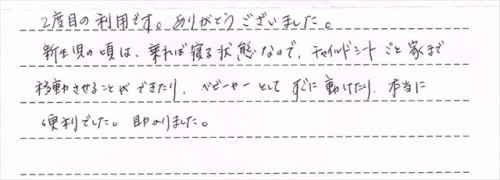 2度目の利用です。ありがとうございました。
新生児の頃は、乗れば寝る状態なので、チャイルドシートごと家まで
移動させることができたり、ベビーカーとしてすぐに動けたり、本当に
便利でした。助かりました。